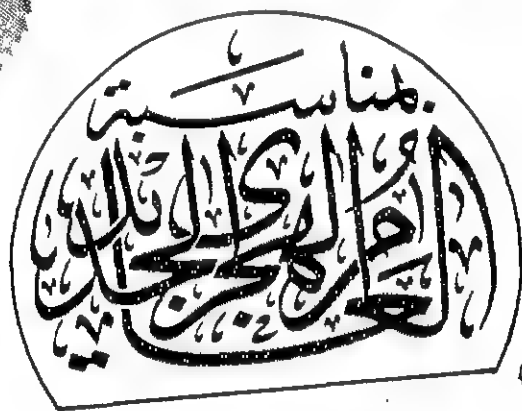 بمناسبة
العام الهجري الجديد